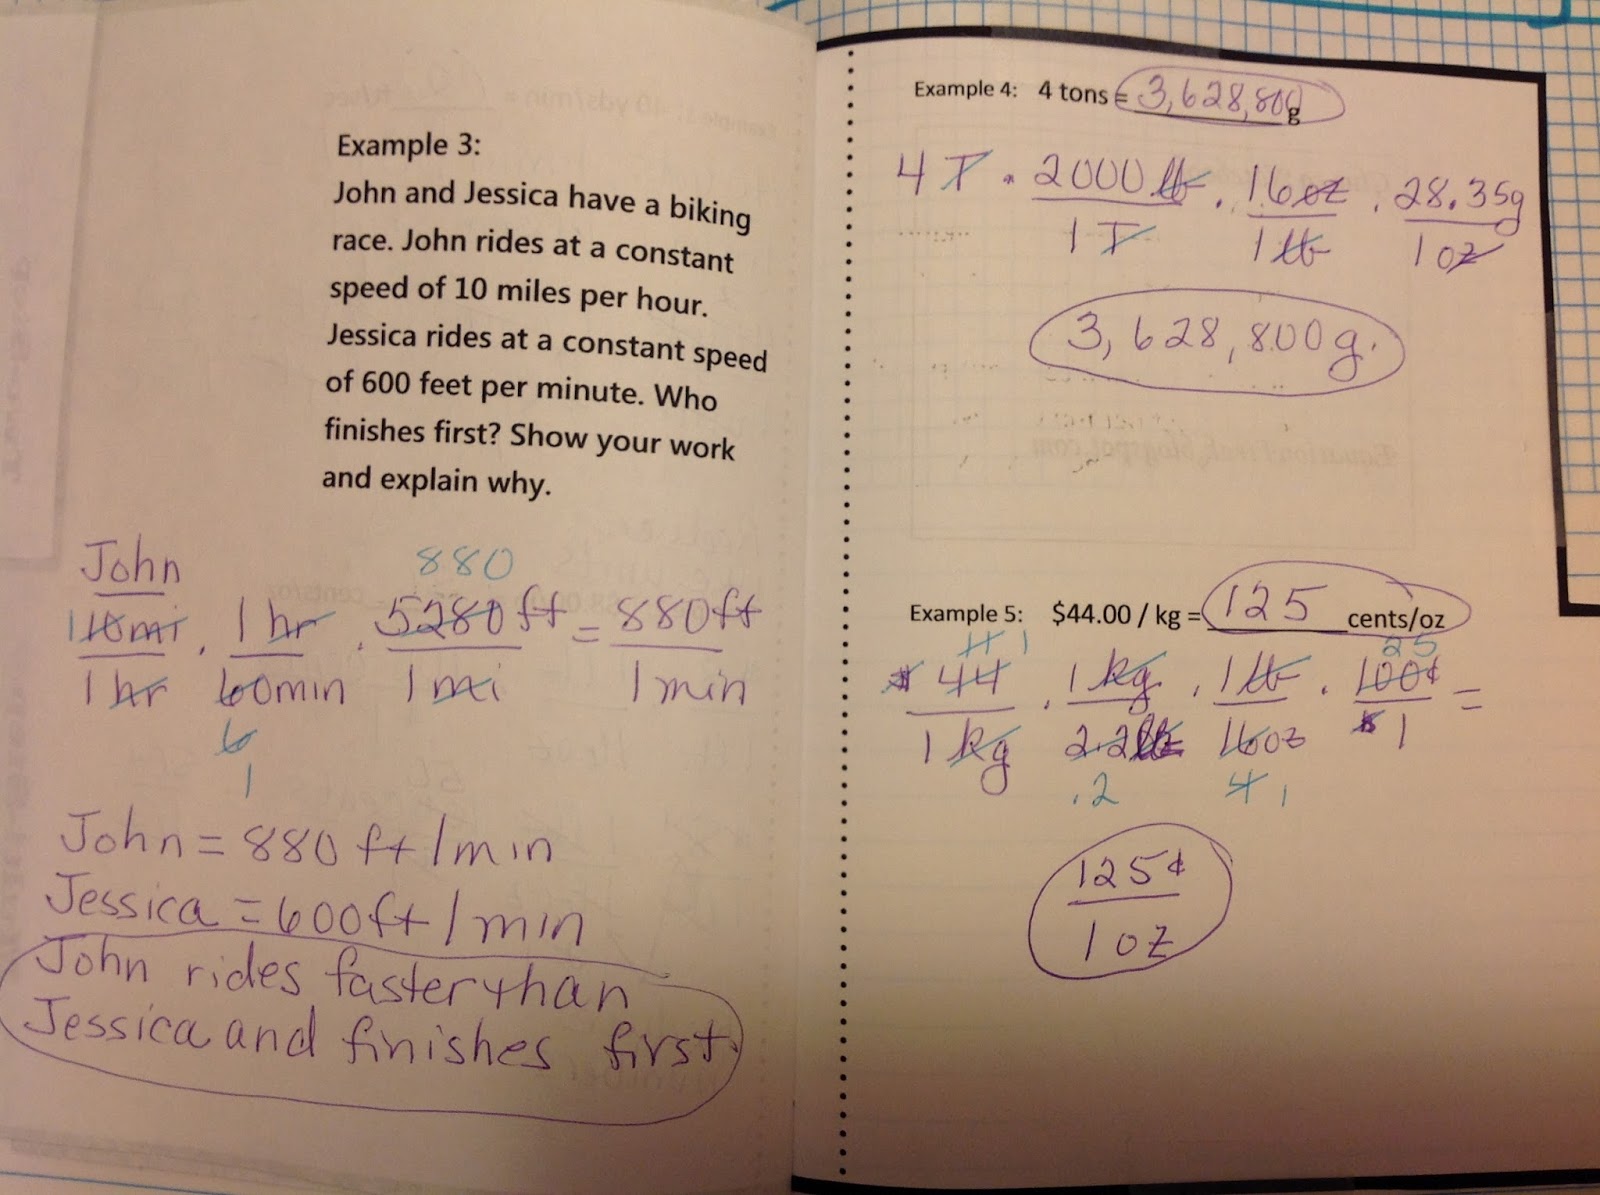 Example 3:
John and Jessica have a biking
race. John rides at a constant
speed of 10 miles per hour.
Jessica rides at a constant speed
of 600 feet per minute. Who
finishes first? Show your work
and explain why.
John
880
1 10mi . 1 hr . 5280 ft = 880ft
1 hr 60min 1 mi 1 min
6
1
John = 880 ft/min
Jessica = 600ft/min
John rides faster than
Jessica and finishes first.
Example 4: 4 tons = 3,628,800 g
4 T . 2000 lb . 16 oz . 28.35g
1 T 1 lb 1 oz
3,628,800 g.
Example 5: $44.00 / kg = 125 cents/oz
11 1 25
$ 44 . 1 kg . 1 lb . 100¢ =
1 kg 2.2 lb 16 oz $ 1
.2 4 1
125¢
1 oz